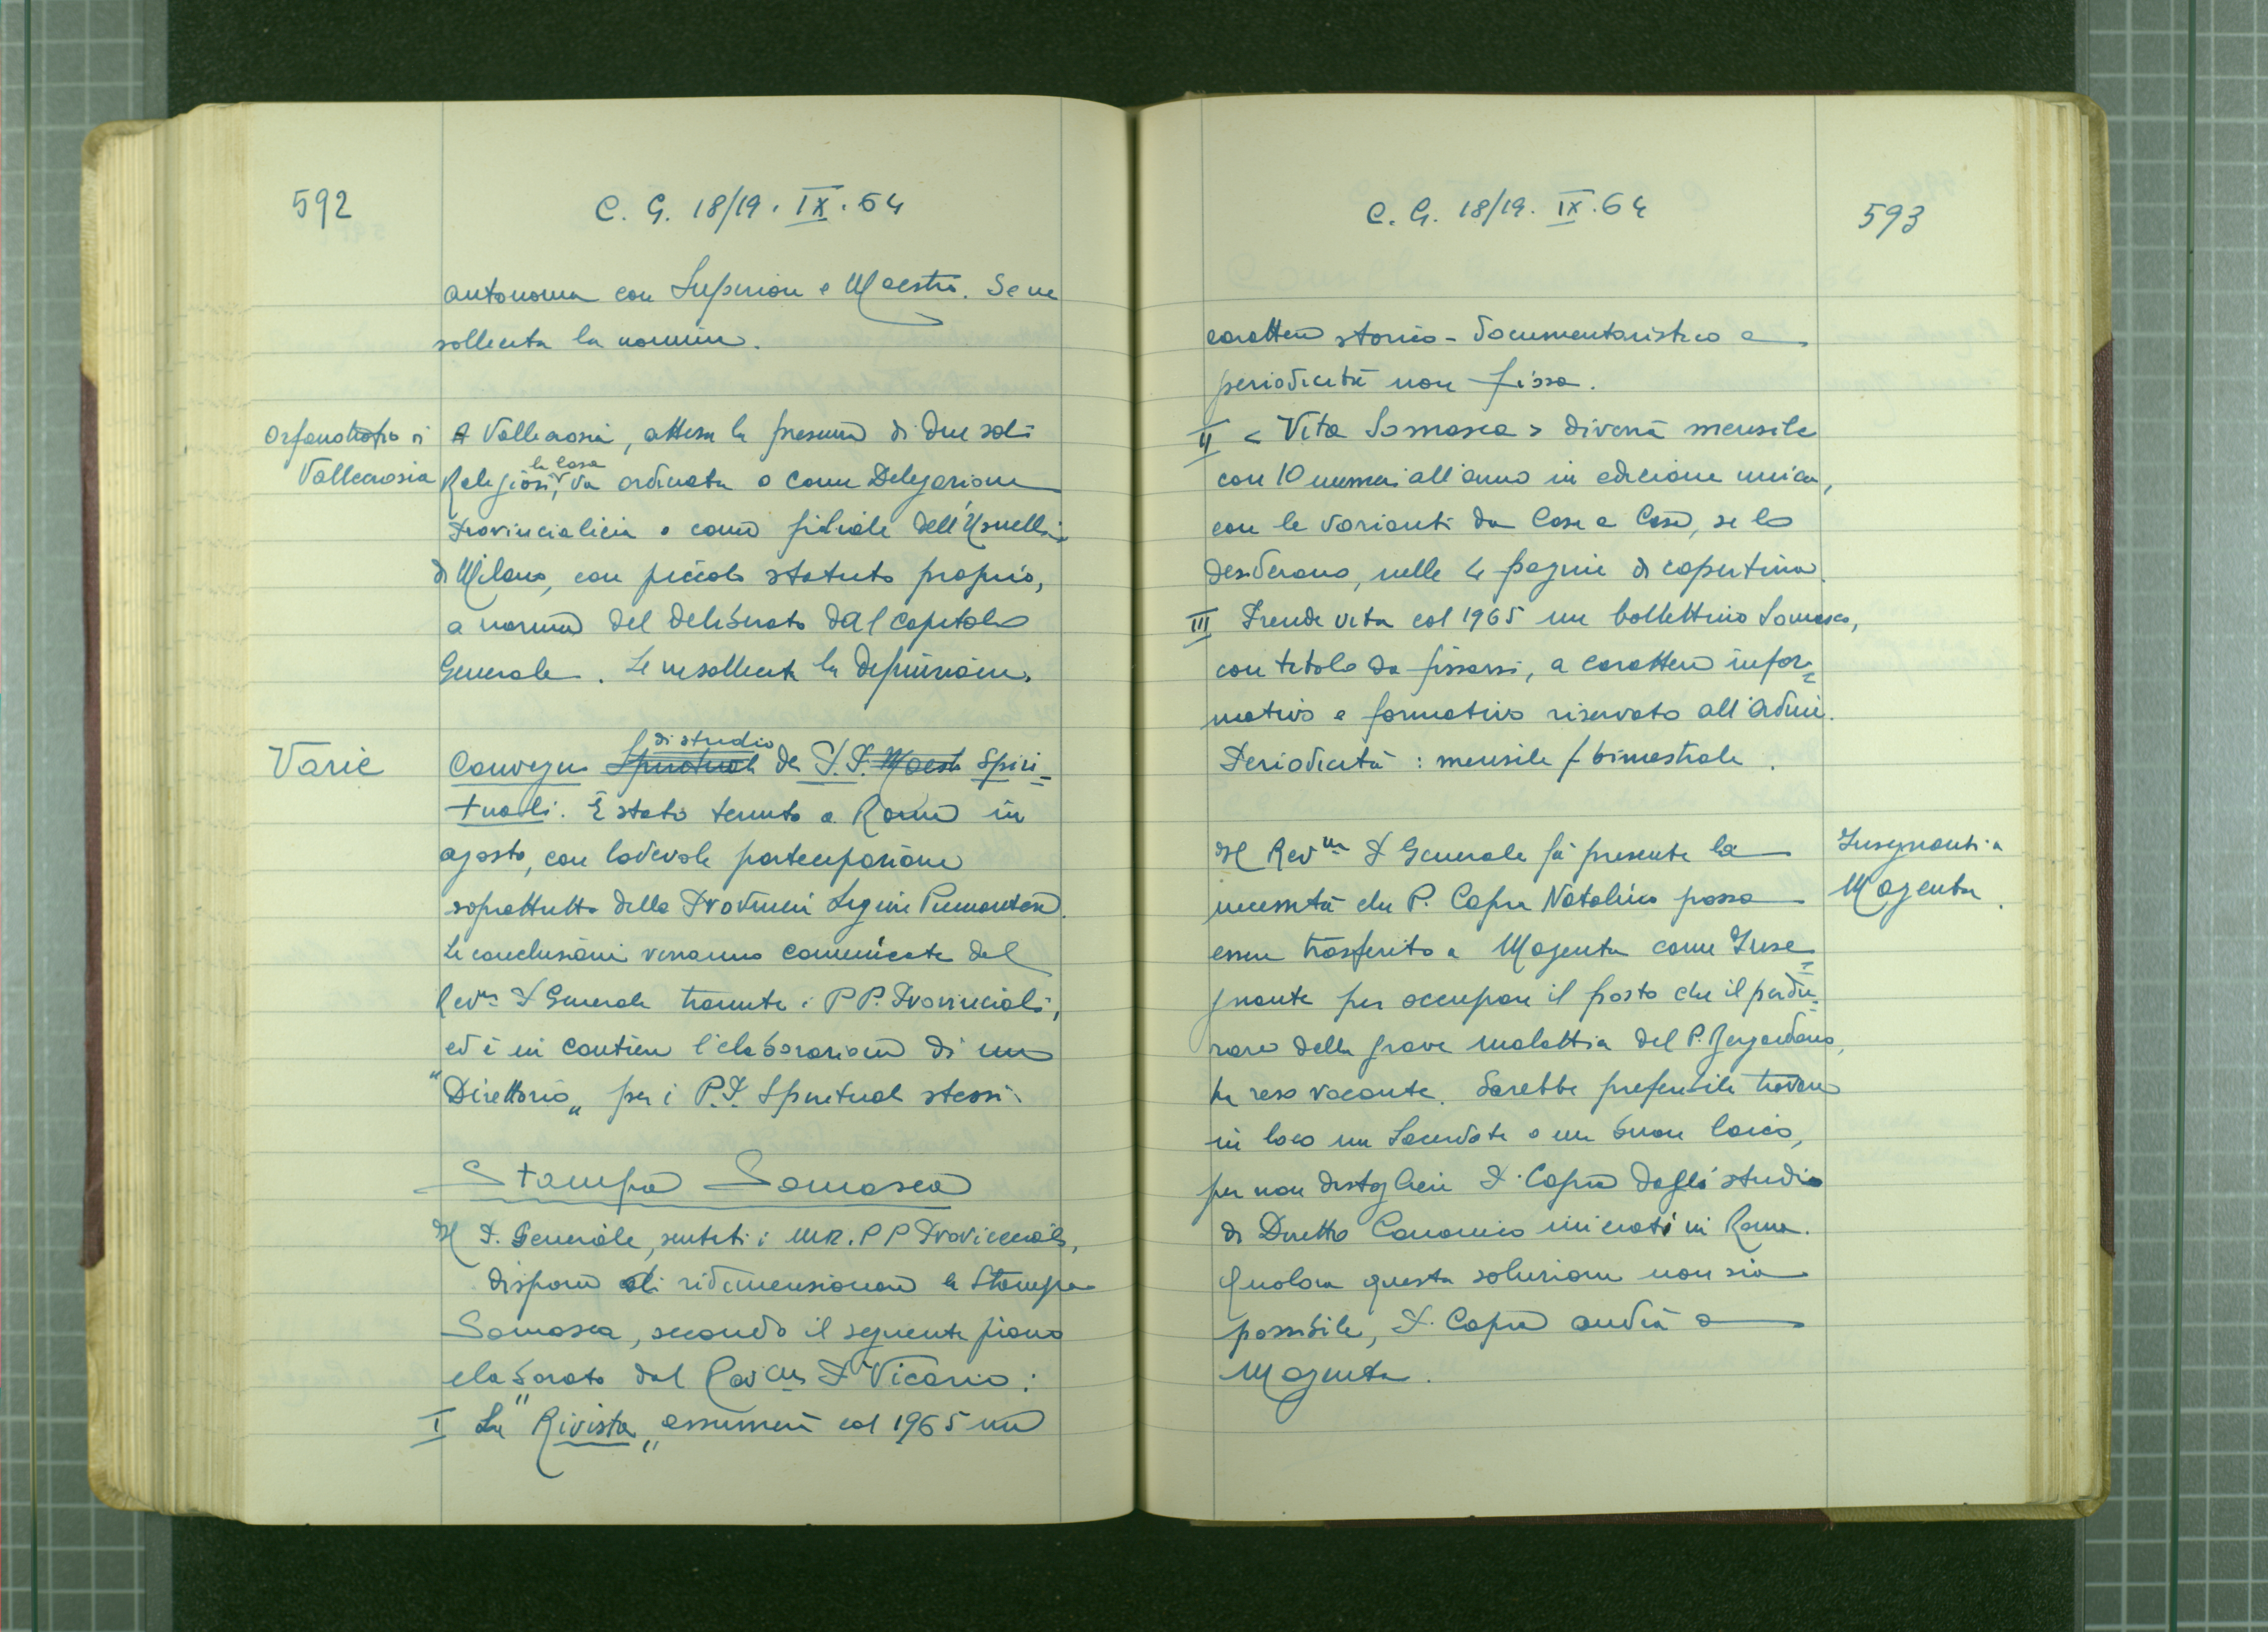 592
C. G. 18/19. IX. 64
autonoma con Superiore e Maestro. Se ne
sollecita la nomina.
Orfanotrofio di
Vallecrosia
A Vallecrosia, attesa la presenza di due soli
Religiosi, la Casa va ordinata o come Delegazione
Provincialicia o come filiale dell'Usuelli
di Milano, con piccolo statuto proprio,
a norma del deliberato dal Capitolo
Generale. Se ne sollecita la definizione.
Varie
Convegno Spirituale di studio dei P.P. Maestri Spiri=
tuali. È stato tenuto a Roma in
agosto, con lodevole partecipazione
soprattutto della Provincia Ligure Piemontese.
Le conclusioni verranno comunicate dal
Rev.mo P. Generale tramite i PP. Provinciali,
ed è in cantiere l'elaborazione di un
"Direttorio" per i P.P. Spirituali stessi.
Stampa Somasca
Il P. Generale, sentiti i M.R. PP Provinciali,
dispone di ridimensionare la Stampa
Somasca, secondo il seguente piano
elaborato dal Rev.mo P. Vicario:
I La "Rivista" assumerà col 1965 un
C. G. 18/19. IX. 64
593
carattere storico-documentaristico e
periodicità non fissa.
II < Vita Somasca > diverrà mensile
con 10 numeri all'anno in edizione unica,
con le varianti da Casa a Casa, se lo
desiderano, nelle 4 pagine di copertina.
III Prende vita col 1965 un bollettino Somasco,
con titolo da fissarsi, a carattere infor=
mativo e formativo riservato all'Ordine.
Periodicità: mensile / bimestrale.
Insegnanti a
Magenta.
Il Rev.mo P. Generale fa presente la
necessità che P. Capra Natalino possa
essere trasferito a Magenta come Inse=
gnante per occupare il posto che il perdu=
rare della grave malattia del P. Bergadano,
ha reso vacante. Sarebbe preferibile trovare
in loco un Sacerdote o un buon laico,
per non distogliere P. Capra dagli studi
di Diritto Canonico iniziati in Roma.
Qualora questa soluzione non sia
possibile, P. Capra andrà a
Magenta.